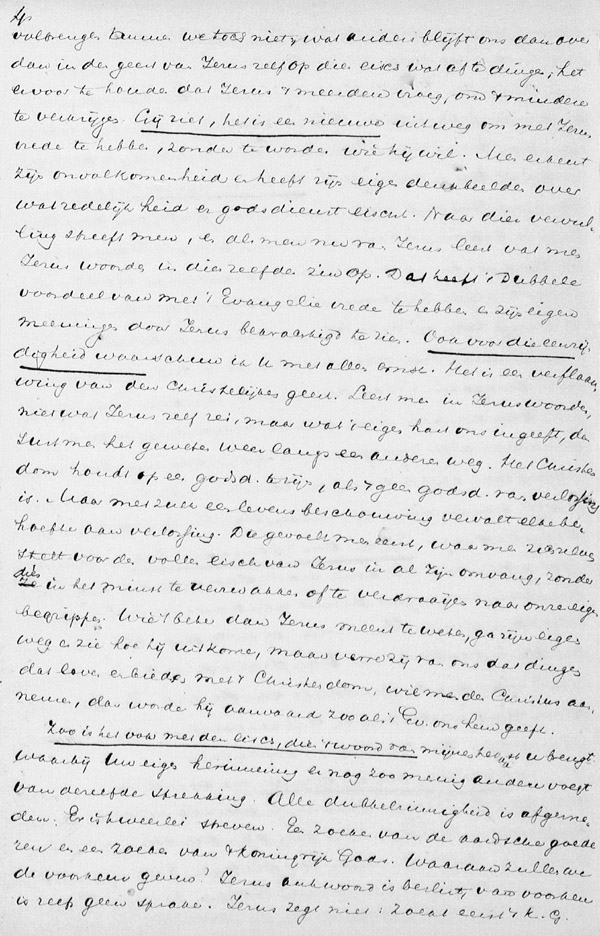 4
volbrengen kunnen we toch niet, wat anders blijft ons dan over
dan in den geest van Jezus zelf op dien eisch wat af te dingen, het
ervoor te houden dat Jezus 't meerdere vroeg, om 't mindere
te verkrijgen. Gij ziet, het is een nieuwe uitweg om met Jezus
vrede te hebben, zonder te worden wie hij wil. Men erkent
zijn onvolkomenheid en heeft zijn eigen denkbeelden over
wat redelijkheid en godsdienst eischt. Naar dien vervul-
ling streeft men, en als men nu van Jezus leest vat men
Jezus woorden in die zelfde zin op. Dat heeft 't dubbele
voordeel van met 't Evangelie vrede te hebben en zijn eigen
meeningen door Jezus bekrachtigd te zien. Ook voor die eenzij
digheid waarschuw ik U met allen ernst. Het is een verflau-
wing van den Christelijken geest. Leest men in Jezus woorden,
niet wat Jezus zelf zei, maar wat 't eigen hart ons ingeeft, dan
sust men het geweten weer langs een anderen weg. Het Christen
dom houdt op een godsd. te zijn, als 't geen godsd. van verlossing
is. Maar met zulk een levensbeschouwing vervalt elke be-
hoefte aan verlossing. Die gevoelt men eerst, waar men zichzelven
stelt voor den vollen eisch van Jezus in al zijn omvang, zonder
dien in het minst te verzwakken of te verdraaijen naar onze eigen
begrippen. Wie 't beter dan Jezus meent te weten, ga zijn eigen
weg en zie hoe hij uitkome, maar verre zij van ons dat dingen
dat loven en bieden met 't Christendom, wil men den Christus aan-
nemen, dan worde hij aanvaard zooals 't Ev. ons hem geeft.
Zoo is het ook met den eisch, dien 't woord van mijnen tekst u brengt
waarbij Uw eigen herinnering er nog zoo menig andere voegt
van dezelfde strekking. Alle dubbelzinnigheid is afgesne-
den. Er is tweeërlei streven. Een zoeken van de aardsche goede
ren en een zoeken van 't koningrijk Gods. Waaraan zullen we
de voorkeur geven? Jezus antwoord is beslist, van voorkeur
is zelfs geen sprake. Jezus zegt niet: zoekt eerst 't k. G.